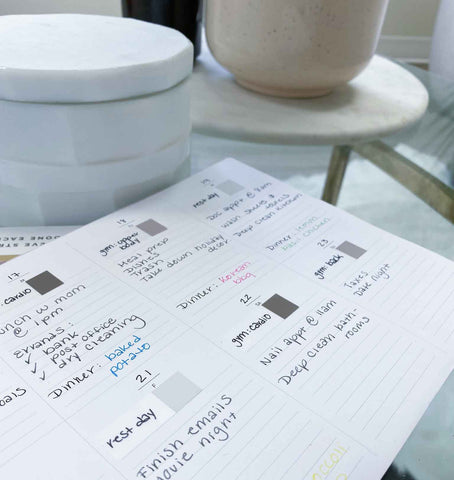 17
cardio
lunch w mom
@ 1pm
Errands:
✓ bank
✓ post office
✓ dry cleaning
Dinner: baked
potato
18
gym: upper
body
Meal prep
Dishes
Trash
Take down holiday
decor
Dinner: Korean
bbq
19
rest day
Doc appt @ 11am
Wash sheets &
towels
Deep clean kitchen
Dinner: lemon
chicken
21
rest day
Finish emails
Movie night
22
gym: cardio
Nail appt @ 11am
Deep clean bath-
rooms
23
gym: back
Taxes
Date night